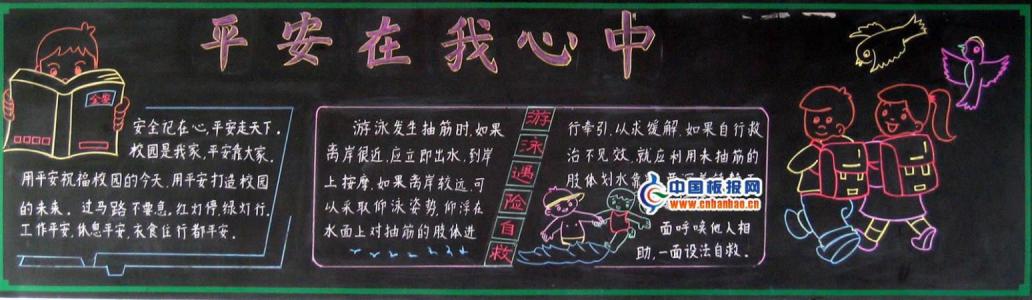 平安在我心中
安全
安全记在心,平安走天下。
校园是我家,平安靠大家。
用平安祝福校园的今天,用平安打造校园
的未来。过马路不要急。红灯停,绿灯行。
工作平安,休息平安,衣食住行都平安。
游泳遇险自救
游泳发生抽筋时,如果
离岸很近,应立即出水,到岸
上按摩,如果离岸较远,可
以采取仰泳姿势,仰浮在
水面上对抽筋的肢体进
行牵引,以求缓解,如果自行救
治不见效,就应利用未抽筋的
肢体划水靠
面呼唤他人相
助,一面设法自救。
中国板报网
www.cnbanbao.cn